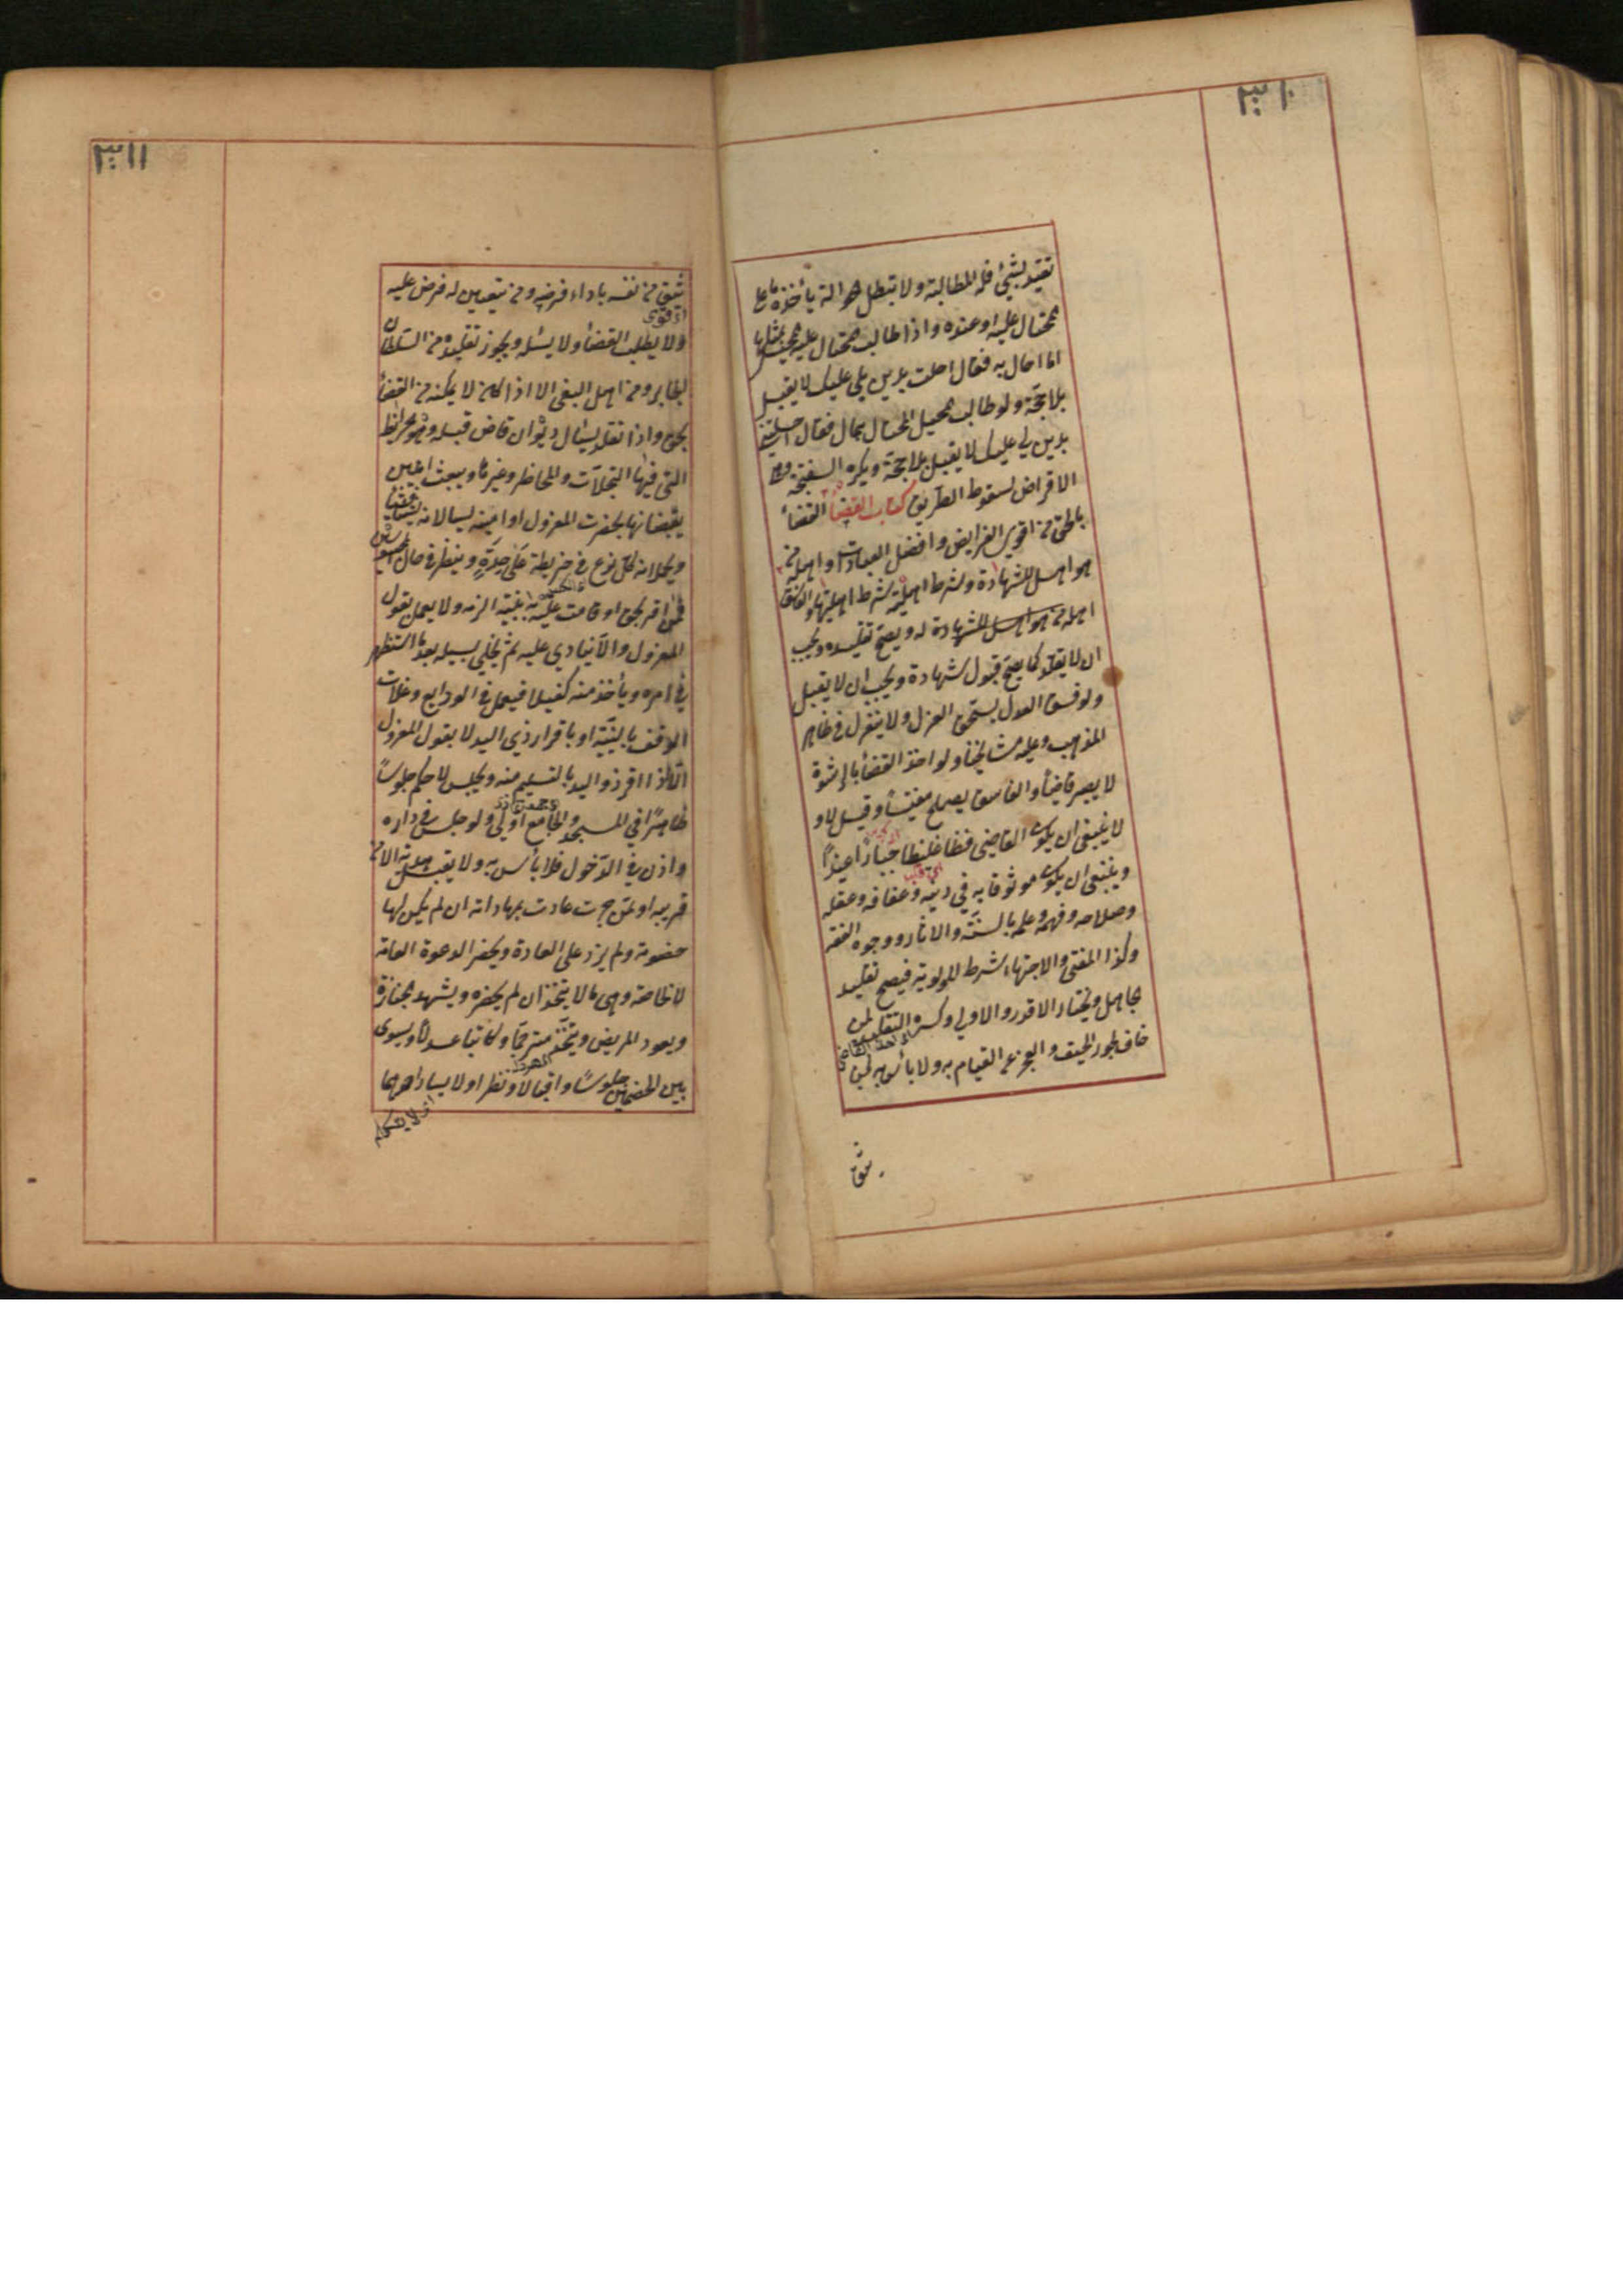 ٣١٠
تقيد بشئ فله المطالبة ولا تبطل الحوالة بأخذه ما على
المحتال عليه او عنده واذا طالب المحتال عليه المحيل بمثل ما
احال به فقال احلت بدين لي عليك لا يقبل
بلا حجة ولو طالب المحيل المحتال بما احال فقال احلتني
بدين لي عليك لا يقبل بلا حجة ويكره السفتجة وهي
الاقراض لسقوط الطريق كتاب القضأ القضأ
بالحق من اقوى الفرايض وافضل العبادات واهله من
هو اهل للشهادة وشرط اهليته شرط اهليتها والفاسق
اهله من هو اهل للشهادة له ويصح تقليده ويجب
ان لا يقلد كما يصح قبول شهادة ويجب ان لا يقبل
ولو فسق العدل يستحق العزل ولا ينعزل في ظاهر
المذهب وعليه مشايخنا ولو اخذ القضأ بالرشوة
لا يصير قاضيا والفاسق يصلح مفتيا وقيل لا و
لا ينبغي ان يكون القاضي فظا غليظا جبارا عنيدا
وينبغي ان يكون موثوقا به في دينه وعفافه وعقله
وصلاحه وفهمه وعلمه بالسنة والاثار ووجوه الفقه
وكذا المفتي والاجتهاد شرط للاولوية فيصح تقليد
الجاهل ويختار الاقدر والاولى وكره التقليد لمن
خاف الحيف والعجز عن القيام به ولا بأس به لمن
يثق
٣١١
يثق من نفسه باداء فرضه ومن تعين له فرض عليه
ولا يطلب القضأ ولا يسئله ويجوز تقليده من السلطان
الجاير ومن اهل البغي الا اذا كان لا يمكنه من القضأ
بحق واذا تقلد يسئال ديوان قاض قبله وهو الخرائط
التي فيها السجلات والمحاضر وغيرها ويبعث امينين
يقبضانها بحضرت المعزول او امينه ويسالانه شيئا فشيئا
ويجعلان كل نوع في خريطة على حدة وينظر في حال المحبوسين
فمن اقر بحق او قامت عليه بينة الزمه ولا يعمل بقول
المعزول والا ينادي عليه ثم يخلي سبيله بعد ما استظهر
في امره ويأخذ منه كفيلا فيعمل في الودايع وغلات
الوقف بالبينة او باقرار ذي اليد لا بقول المعزول
الا اذا اقر ذو اليد بالتسليم منه ويجلس للحكم جلوسا
ظاهرا في المسجد والجامع اولى ولو جلس في داره
واذن في الدخول فلا بأس به ولا يقبل هدية الا من
قريبه او ممن جرت عادت بمهاداته ان لم يكن لهما
خصومة ولم يزد على العادة ويحضر الدعوة العامة
لا الخاصة وهي ما لا يتخذ ان لم يحضره ويشهد الجنازة
ويعود المريض ويتخذ مترجما وكاتبا عدلا ويسوى
بين الخصمين جلوسا واقبالا ونظرا ولا يسار احدهما